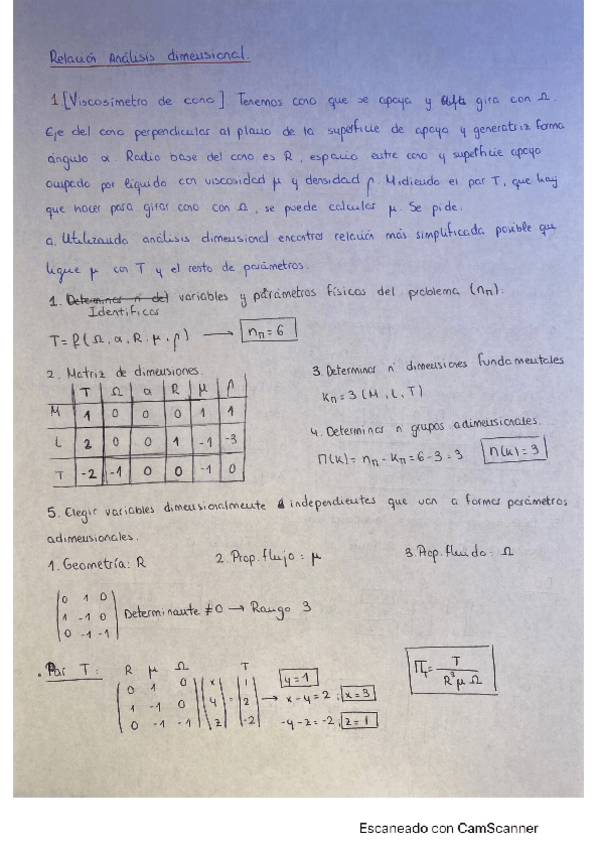 Relación Análisis dimensional.
1 [Viscosímetro de cono] Tenemos cono que se apoya y gira con Ω.
Eje del cono perpendicular al plano de la superficie de apoyo y generatriz forma
ángulo α. Radio base del cono es R, espacio entre cono y superficie apoyo
ocupado por líquido con viscosidad μ y densidad ρ. Midiendo el par T, que hay
que hacer para girar cono con Ω, se puede calcular μ. Se pide.
a. Utilizando análisis dimensional encontrar relación más simplificada posible que
ligue μ con T y el resto de parámetros.
1. Determinar n del variables y parámetros físicos del problema (nₙ):
Identificas
T = f(Ω, α, R, μ, ρ) → nₙ = 6
2. Matriz de dimensiones.
T Ω α R μ ρ
M 1 0 0 0 1 1
L 2 0 0 1 -1 -3
T -2 -1 0 0 -1 0
3. Determinar n° dimensiones fundamentales
Kₙ = 3 (M, L, T)
4. Determinar n grupos adimensionales.
Π(k) = nₙ - Kₙ = 6 - 3 = 3 Π(k) = 3
5. Elegir variables dimensionalmente independientes que van a formar parámetros
adimensionales.
1. Geometría: R 2. Prop. flujo: μ 3. Prop. fluido: Ω
0 1 0
1 -1 0 Determinante ≠ 0 → Rango 3
0 -1 -1
. Par T: R μ Ω T
0 1 0 x 1 y = 1
1 -1 0 y = 2 → x - y = 2; x = 3
0 -1 -1 z -2 -y - z = -2; z = 1
Π₁ = T / R³ μ Ω
Escaneado con CamScanner